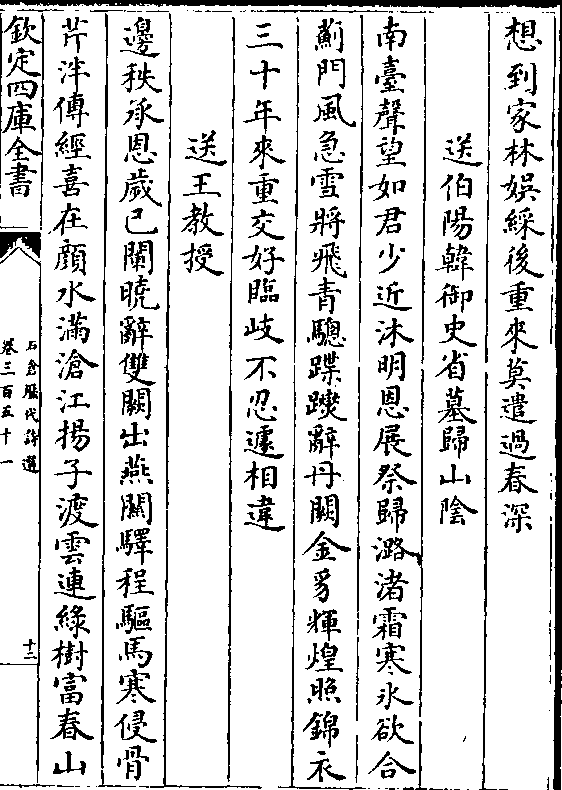 想到家林娯綵後重來莫遣過春深
送伯陽韓御史省墓歸山隂
南臺聲望如君少近沐明恩展祭歸潞渚霜寒氷欲合
薊門風急雪將飛青驄蹀躞辭丹闕金豸輝煌照錦衣
三十年來重交好臨岐不忍遽相違
送王教授
邊秩承恩歲已闌曉辭雙闕出燕關驛程驅馬寒侵骨
芹泮傳經喜在顔水滿滄江揚子渡雲連綠樹富春山
欽定四庫全書
石倉歴代詩選
卷三百五十一
十三